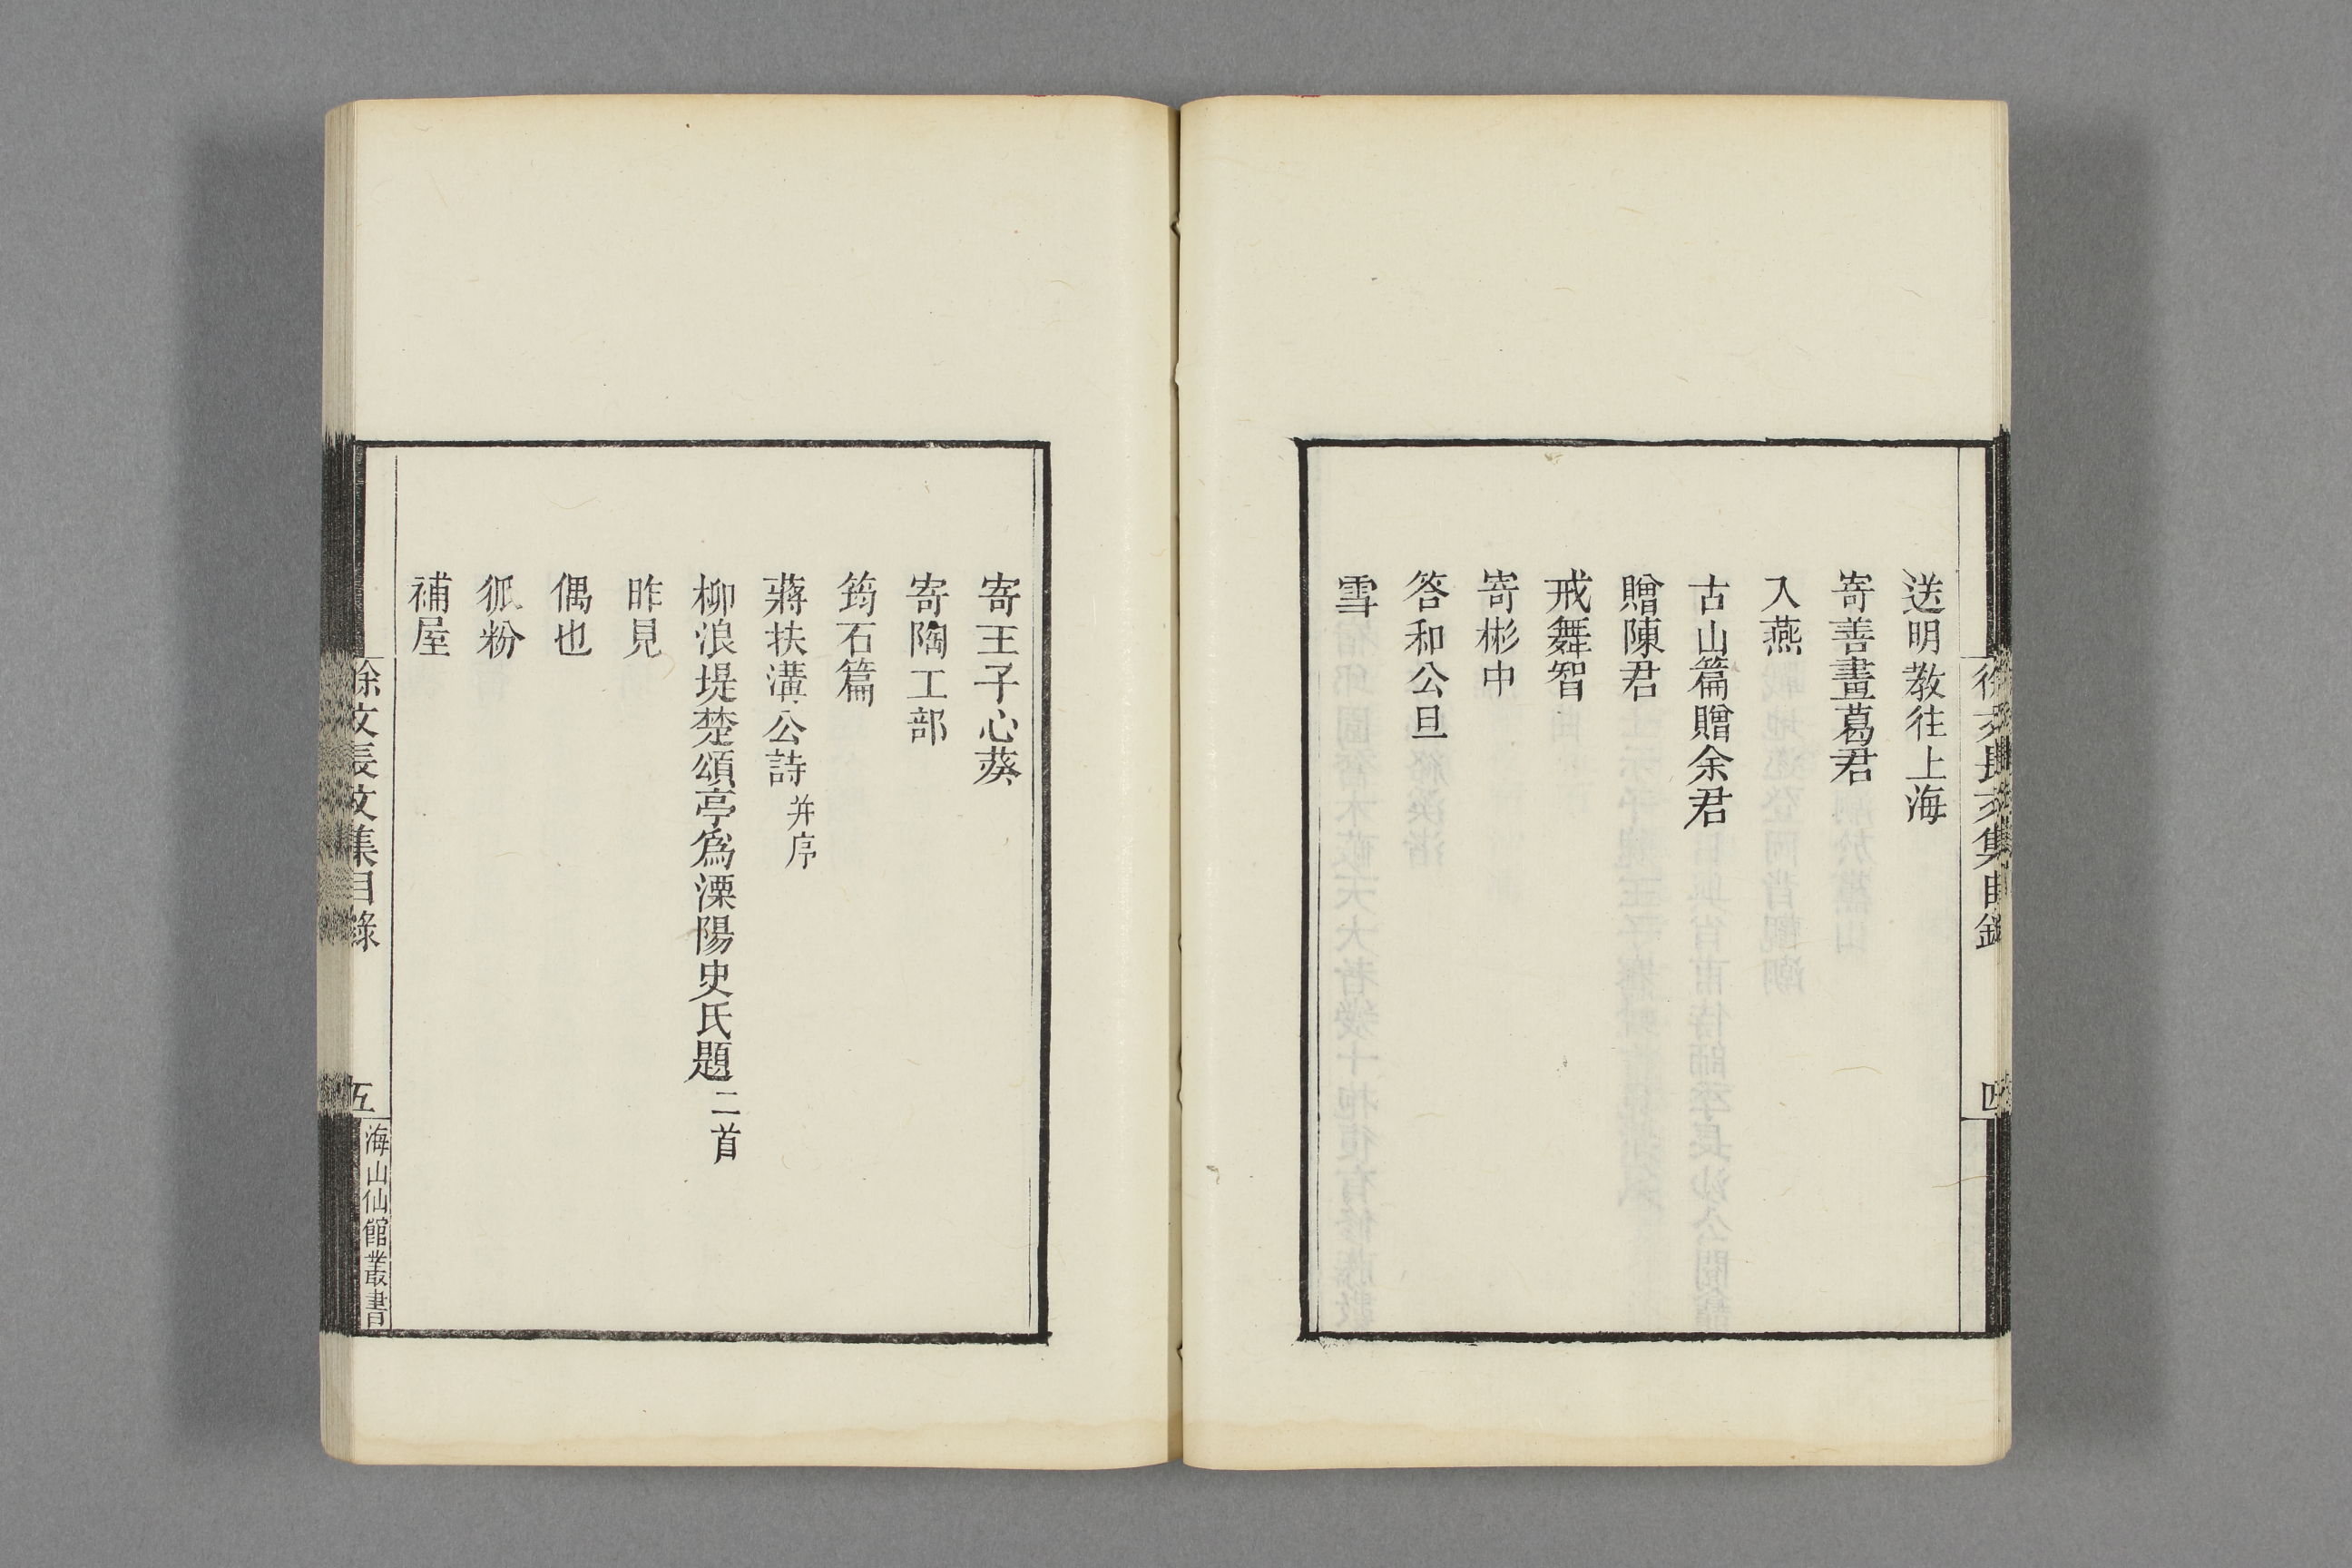 徐文長文集目錄
四
送明教往上海
寄善畫葛君
入燕
古山篇贈余君
贈陳君
戒舞智
寄彬中
答和公旦
雪
寄王子心葵
寄陶工部
筠石篇
蔣扶溝公詩并序
柳浪堤楚頌亭爲溧陽史氏題二首
昨見
偶也
狐粉
補屋
徐文長文集目錄
五
海山仙館叢書